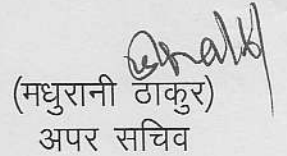 (मधुरानी ठाकुर)
अपर सचिव